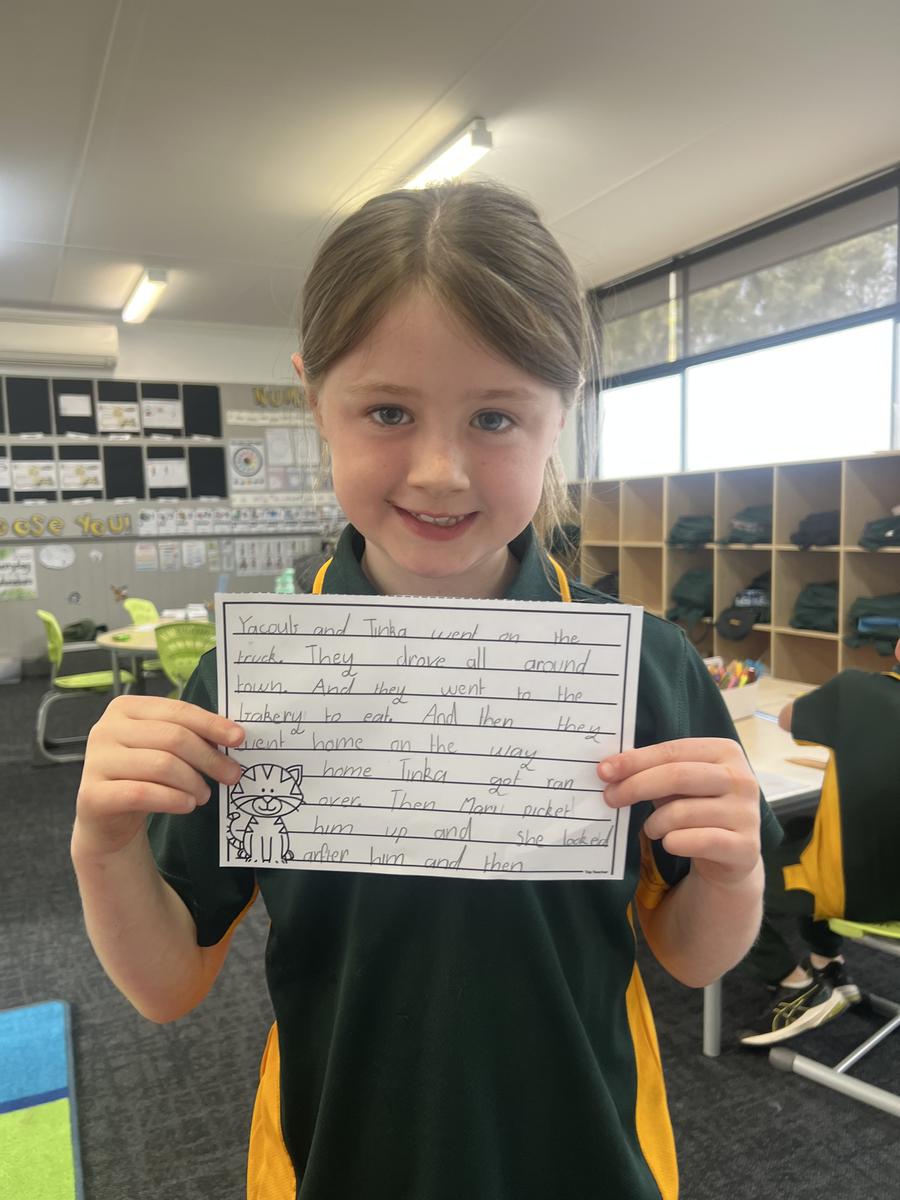 Yacouls and Tinka went on the
truck. They drove all around
town. And they went to the
bakery to eat. And then they
went home on the way
home Tinka got ran
over. Then Maru picket
him up and she looked
arfter him and then
OOSE YOU!